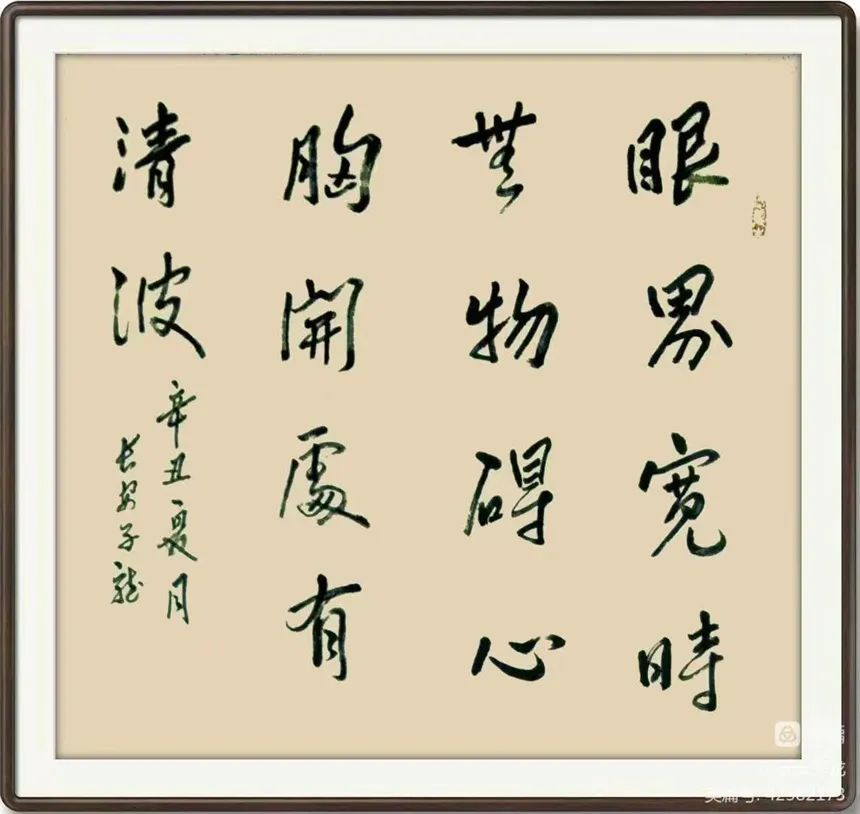 眼界宽時
無物碍心
胸開處有
清波
辛丑夏月
长安子龍
美篇号: 42982173